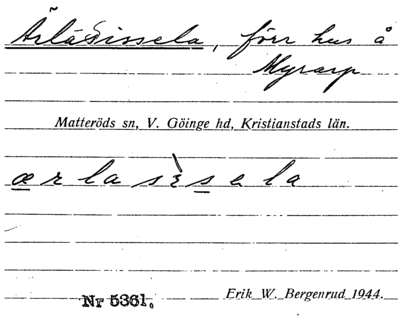 Ärlásissela, förr hus å
Myrarp
Matteröds sn, V. Göinge hd, Kristianstads län.
ærlasìsela
Nr 5361.
Erik W. Bergenrud 1944.